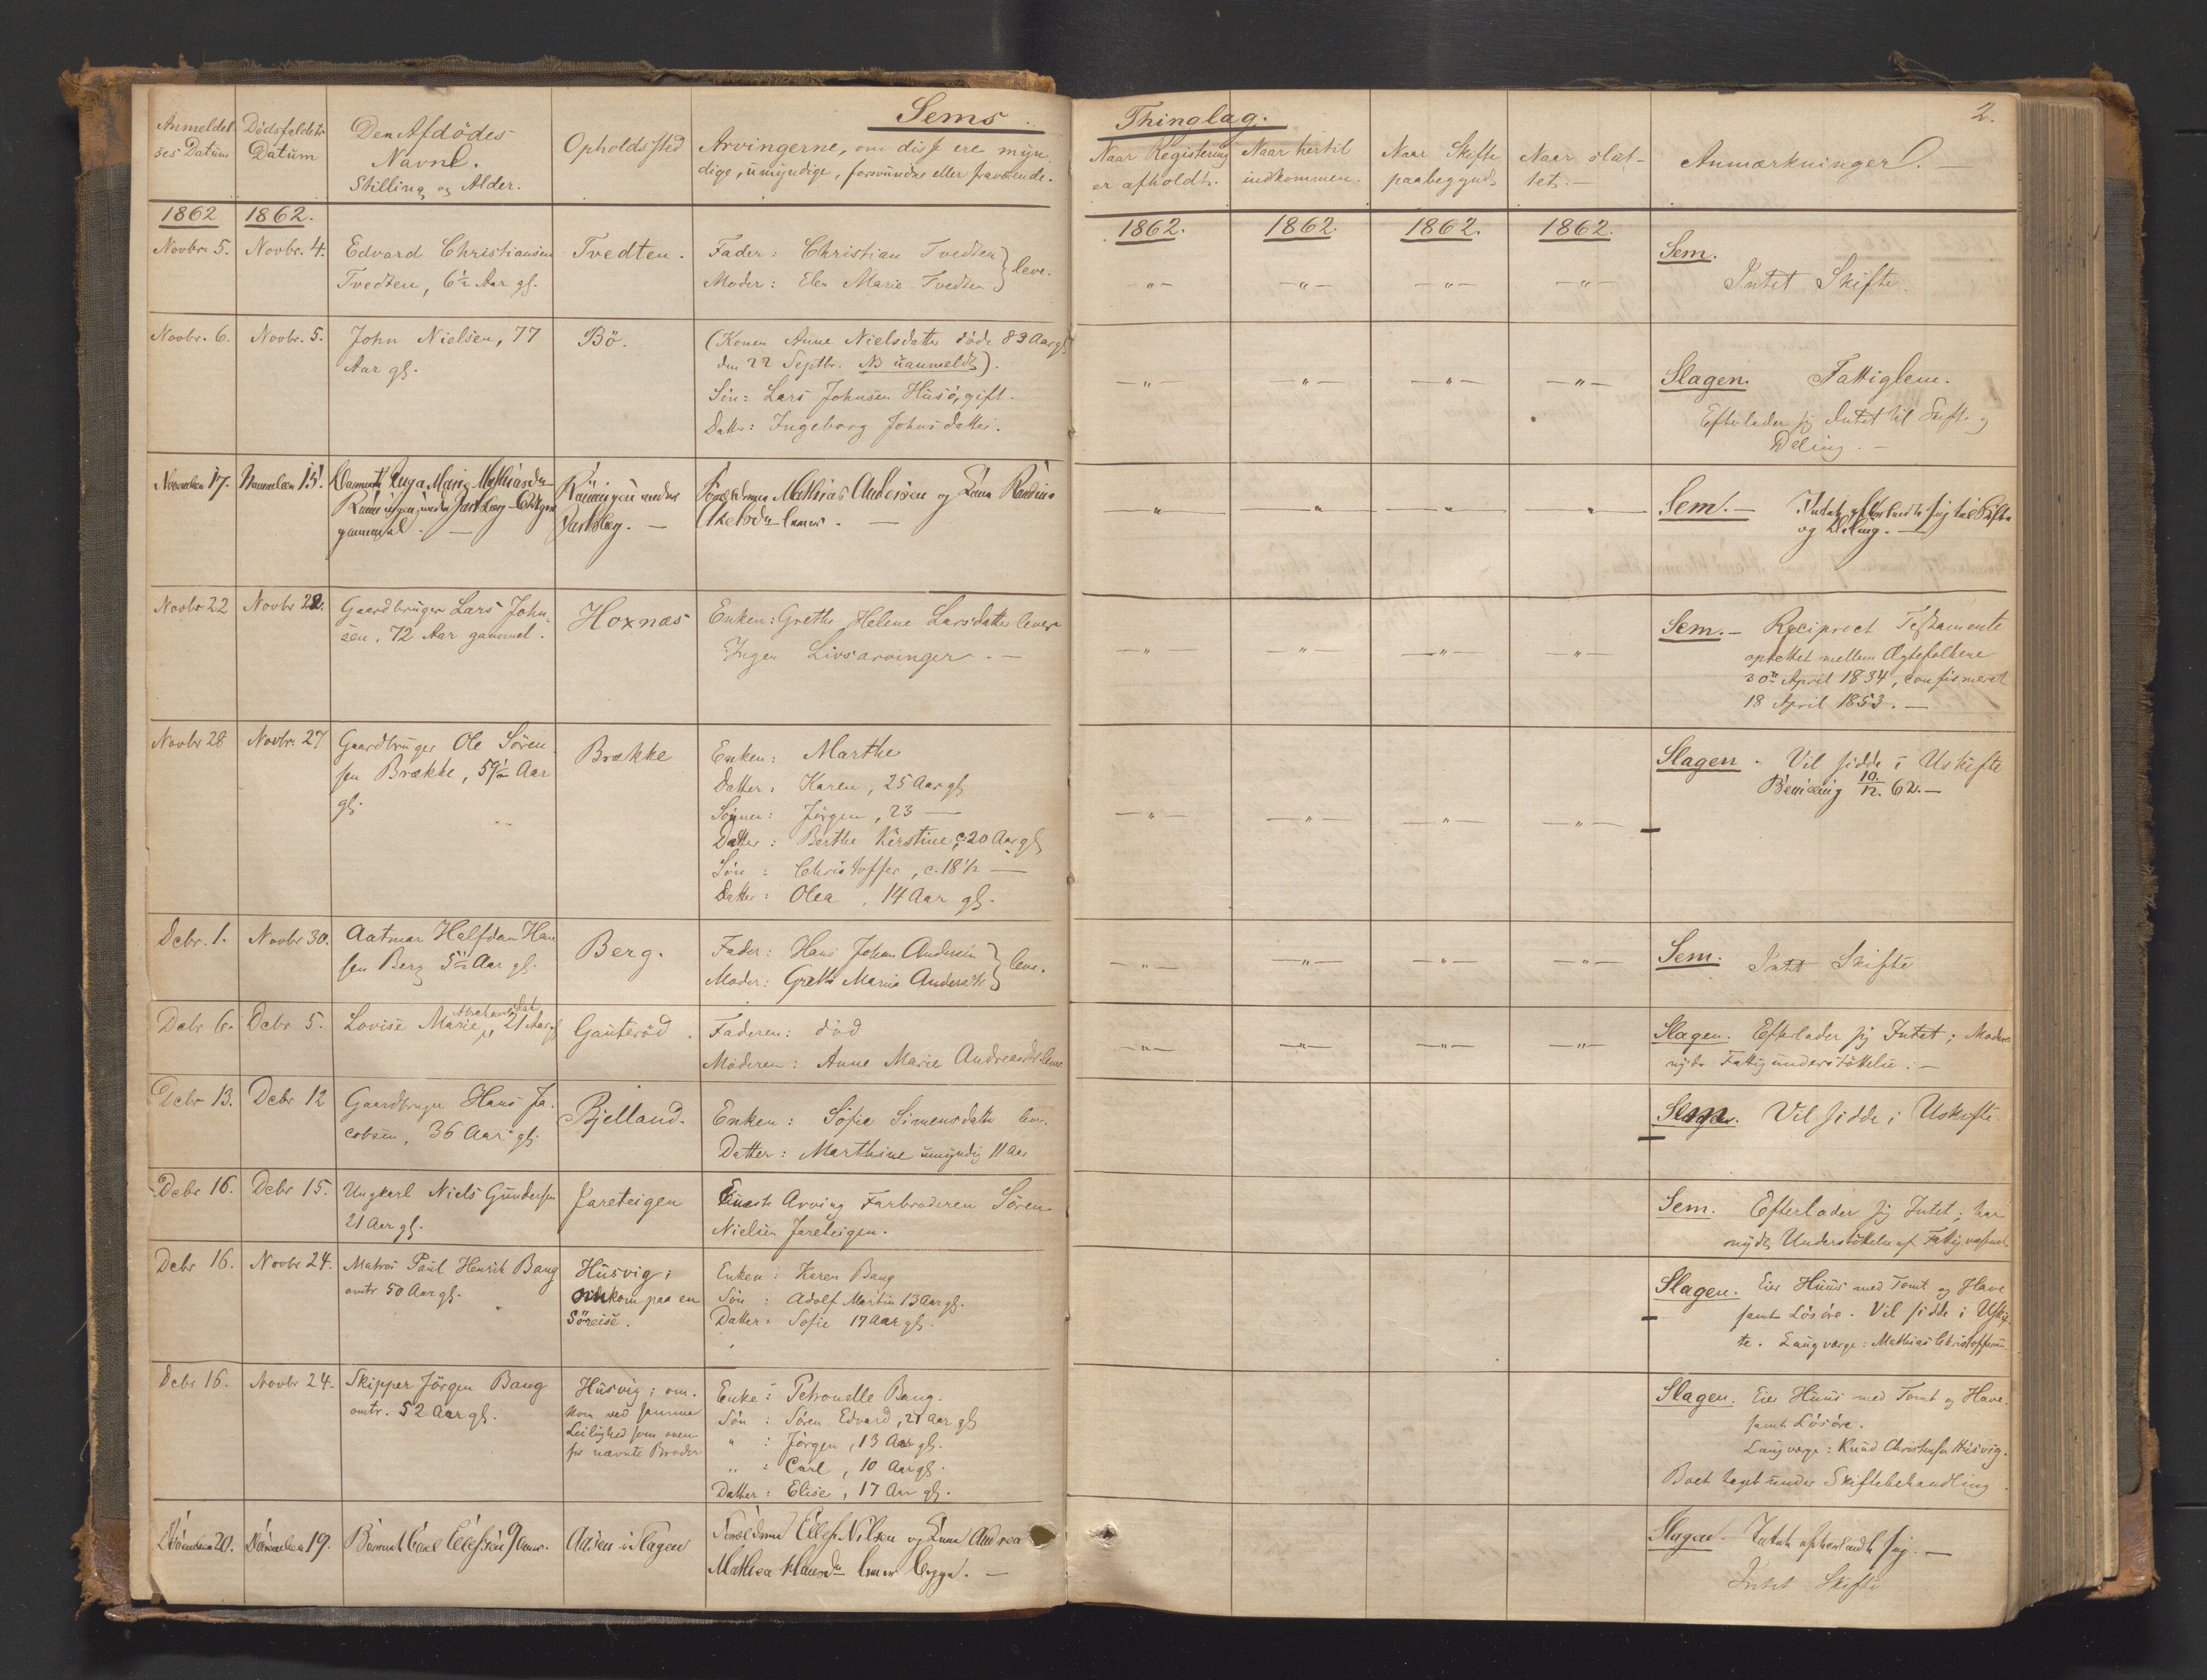 Sems
Thinglag.
2.
Anmeldel-
ses Datum
Dødsfaldets
Datum
Den Afdødes
Navne.
Stilling og Alder.
Opholdssted
Arvingerne, om disse ere myn
dige, umyndige, forsvundne eller fraværende.
Naar Registering
er afholdt.
Naar hertil
indkommen.
Naar Skifte
paabegyndt
Naar slut-
tet.
Anmærkninger.
1862 1862. 1862. 1862. 1862. 1862.
Novbr. 5. Novbr. 4. Edvard Christiansen
Tvedten, 6½ Aar gl.
Tvedten.
Fader: Christian Tvedten
Moder: Elen Marie Tvedten } leve.
Sem.
Intet Skifte.
Novbr. 6. Novbr. 5. John Nielsen, 77
Aar gl.
Bö.
(Konen Anne Nielsdatter døde 83 Aar gl
den 22 Septbr. NB uanmeldt).
Søn: Lars Johnsen Husø, gift.
Datter: Ingeborg Johnsdatter.
Slagen. Fattiglem.
Efterlader sig Intet til Skift og
Deling.
November 17. November 15. Inga Marie Mathiasdr
under Jarlsberg
gammel.
under
Jarlsberg.
Forældrene Mathias Andersen og
lever.
Sem. Intet efterladt sig til Skifte
og Deling.
Novbr 22 Novbr 22. Gaardbruger Lars John
sen, 72 Aar gammel.
Hoxnæs
Enken: Grethe Helene Larsdatter lever
Ingen Livsarvinger.
Sem. Reciproct Testamente
oprettet mellem Ægtefolkene
30te April 1834, confirmeret
18 April 1853.
Novbr 28 Novbr. 27 Gaardbruger Ole Sören
sen Brække, 59½ Aar
gl.
Brække
Enken: Marthe
Datter: Karen, 25 Aar gl
Sønner: Jørgen, 23 —
Datter: Berthe Kirstine, c 20 Aar gl
Søn: Christoffer, c. 18½ —
Datter: Olea, 14 Aar gl.
Slagen. Vil sidde i Uskifte
10/12. 62.
Debr. 1. Novbr 30. Aatmar Halfdan Han
sen Berg 5½ Aar gl.
Berg.
Fader: Hans Johan Andersen
Moder: Grethe Maria } leve.
Sem. Intet Skifte
Debr 6. Debr 5. Lovise Marie Abrahamsdat., 21 Aar gl
Gauteröd.
Faderen: død
Moderen: Anne Marie Andreasdtr lever
Slagen. Efterlader sig Intet; Moderen
nyder Fattigunderstøttelse.
Debr 13. Debr 12 Gaardbruger Hans Ja
cobsen, 36 Aar gl.
Bjelland.
Enken: Sofie Simensdatter lever.
Datter: Marthine umyndig 11 Aar
Sem. Vil sidde i Uskifte.
Debr 16. Debr 15. Ungkarl Niels Gundersen
21 Aar gl.
Jareteigen
Eneste Arving Farbroderen Sören
Nielsen Jareteigen.
Sem. Efterlader sig Intet; har
nydt Understøttelse af Fattigvæsenet
Debr 16. Novbr 24. Matros Paul Henrik Bang
omtr 50 Aar gl.
Husvig;
omkom paa en
Söreise.
Enken: Karen Bang
Søn: Adolf Martin 13 Aar gl.
Datter: Sofie 17 Aar gl.
Slagen. Eier Huus med Tomt og Have
samt Løsøre. Vil sidde i Uskif-
te. Laugværge: Mathias Christoffersen.
Debr 16. Novbr 24. Skipper Jörgen Bang
omtr. 52 Aar gl.
Husvig; om-
kom ved samme
Leilighed som oven-
for nævnte Broder
Enke: Petronelle Bang.
Søn: Søren Edvard, 21 Aar gl
" : Jørgen, 13 Aar gl.
" : Carl, 10 Aar gl.
Datter: Elise, 17 Aar gl.
Slagen. Eier Huus med Tomt og Have
samt Løsøre.
Laugværge: Knud Christensen Husvig.
Boet taget under Skiftebehandling.
December 20. December 19. Barnet Carl Ellefsen
i Slagen
Forældrene Ellef Nilsen og Kone Andrea
Mathea Hansdr lever begge.
Slagen. Intet efterladt sig.
Intet Skifte